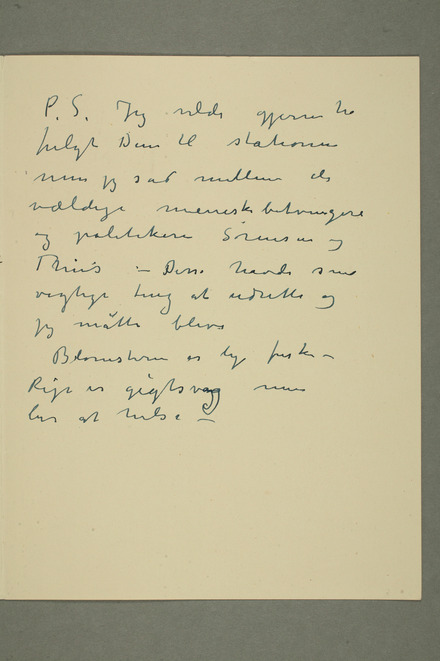 P. S. Jeg vilde gjerne ha
fulgt Dem til stationen
men jeg sad mellem de
vældige menneskebetvingere
og politikere Sørensen og
Thiis — Disse havde sine
vigtige ting at udrette og
jeg måtte blive
Blomsterne er lige friske —
Rije er gigtsvag men
ber at hilse —